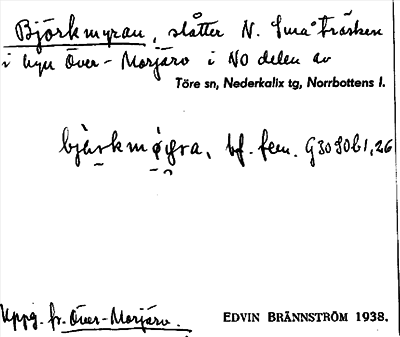 Björkmyran, slåtter N. Småträsken
i byn Över-Morjärv i NO delen av
Töre sn, Nederkalix tg, Norrbottens l.
bf. fem. G30S0b1,26
Uppg. fr. Över-Morjärv.
EDVIN BRÄNNSTRÖM 1938.